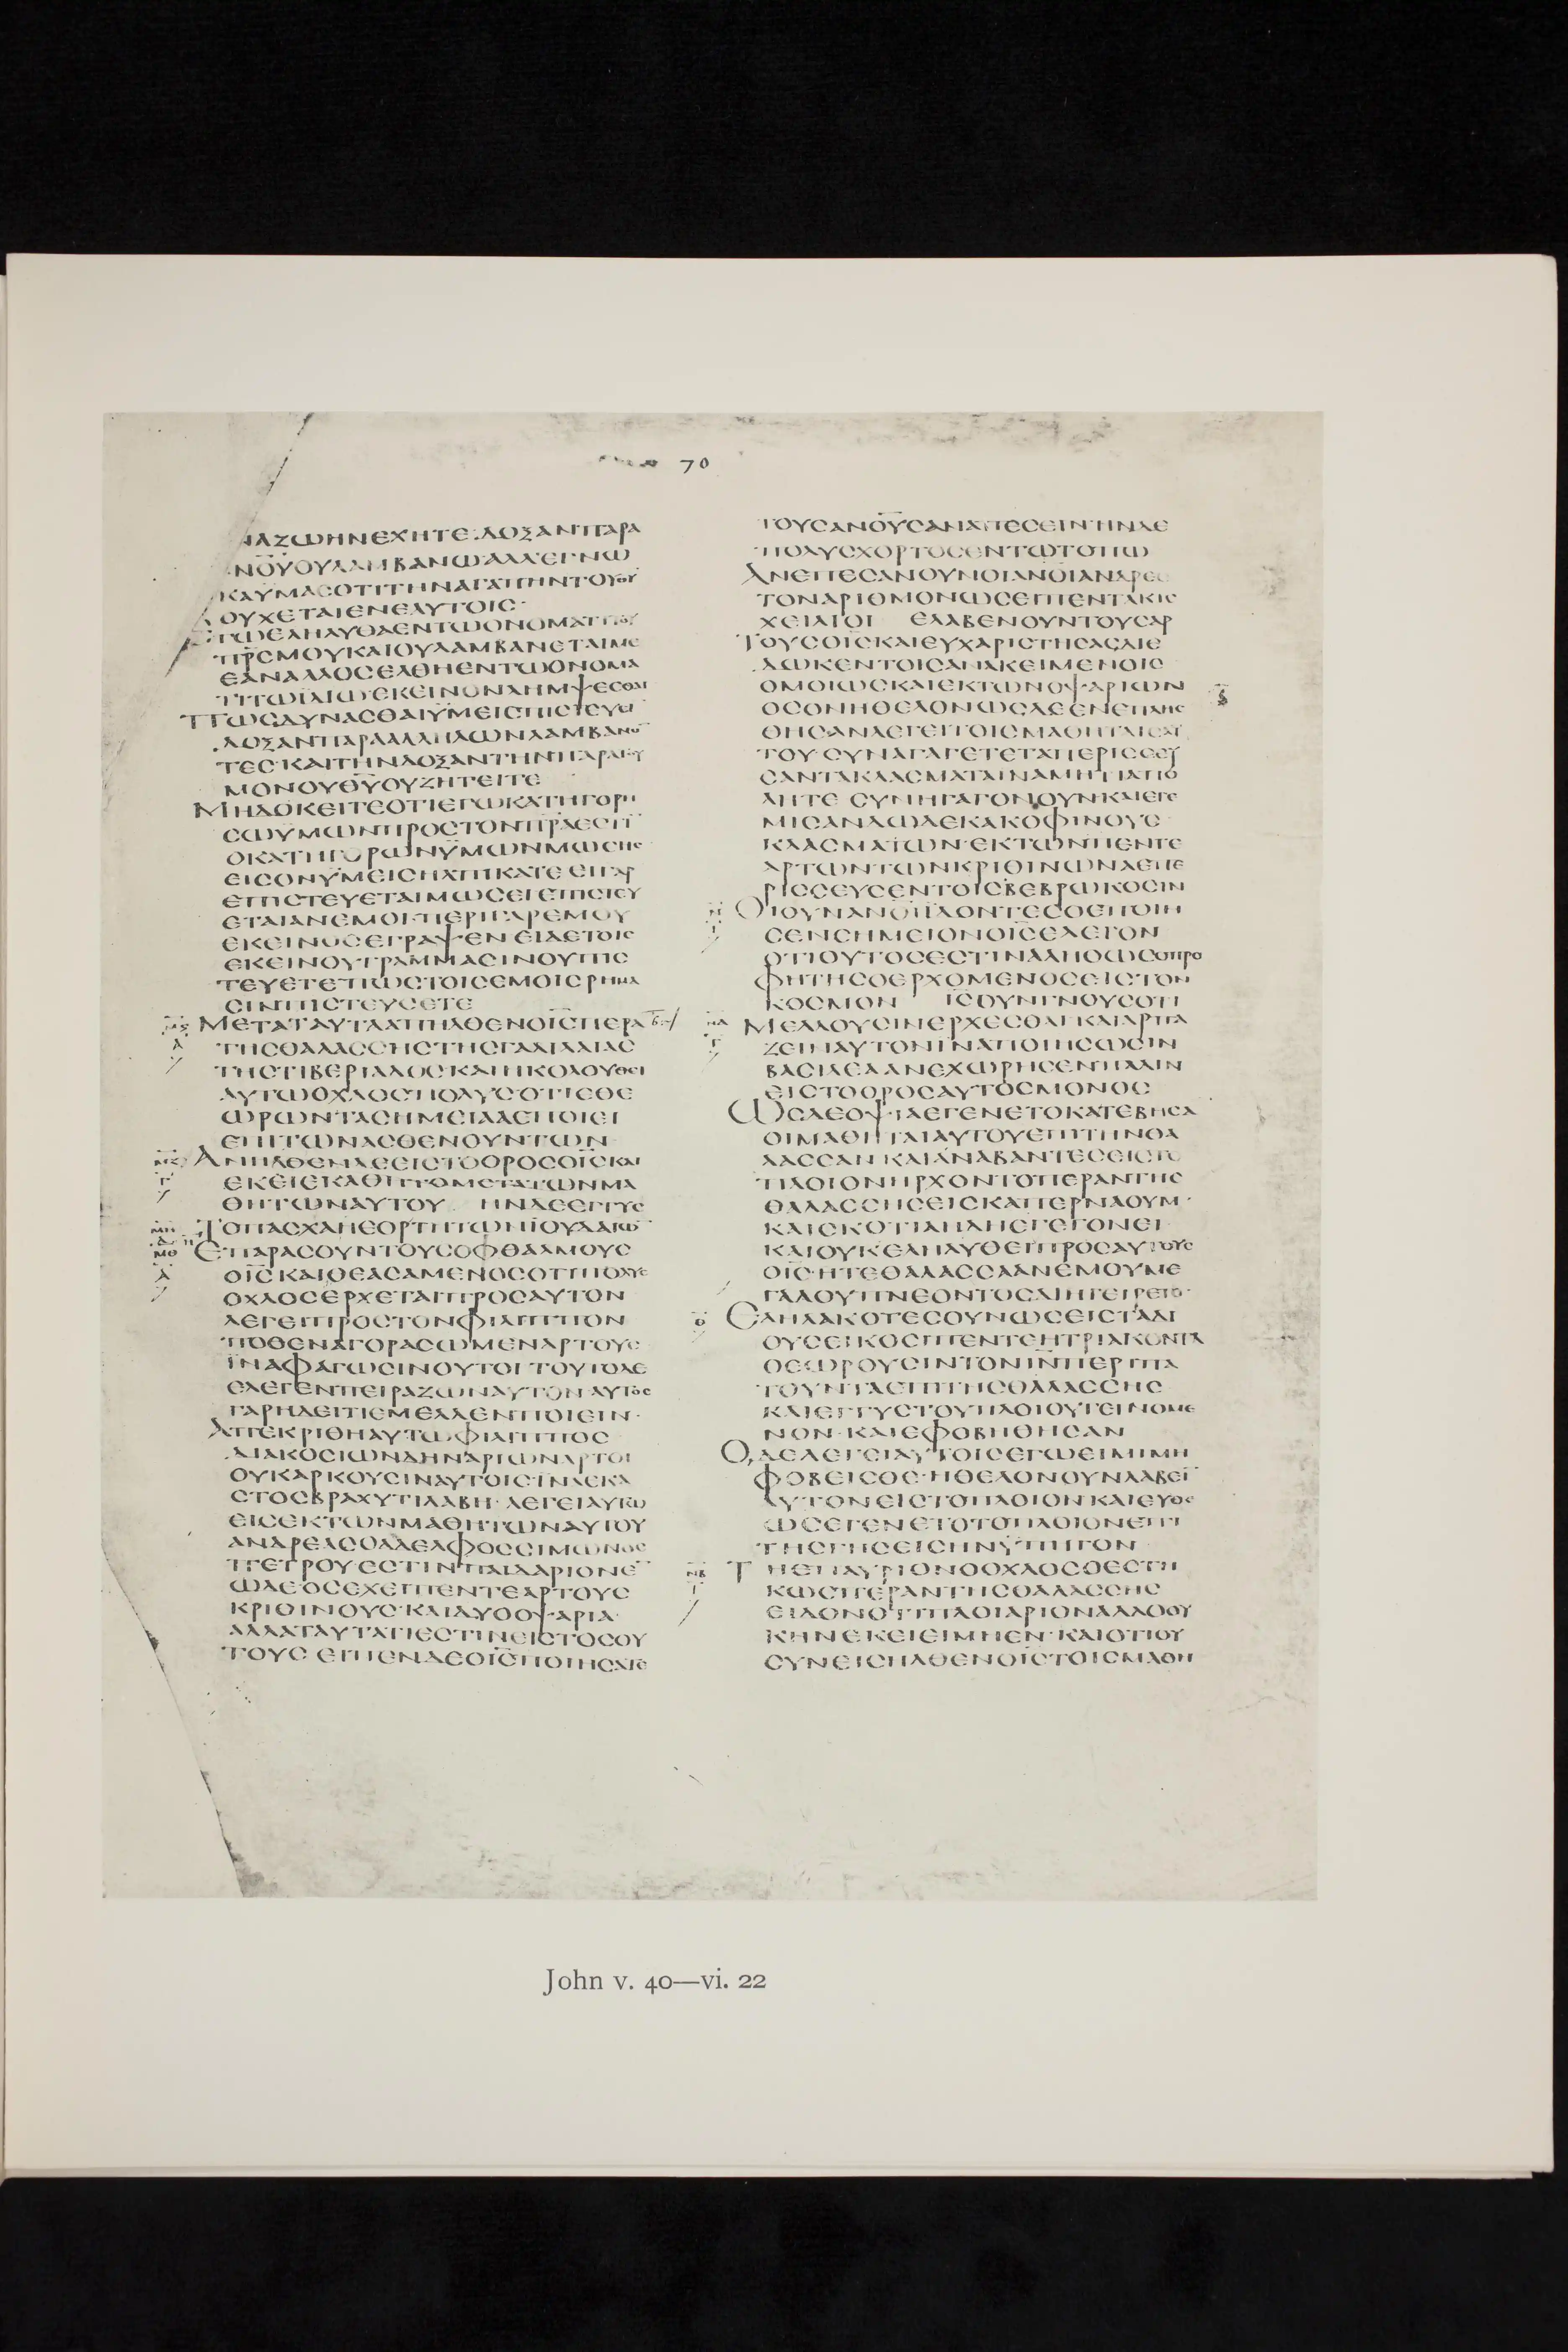 70
ΝΑΖΩΗΝΕΧΗΤΕ·ΔΟΞΑΝΠΑΡΑ
ΝΟΥΟΥΛΑΜΒΑΝΩΑΛΛΕΓΝΩ
ΚΑΫΜΑϹΟΤΙΤΗΝΑΓΑΠΗΝΤΟΥΘΥ
ΟΥΧΕΤΑΙΕΝΕΑΥΤΟΙϹ·
ΓΩΕΛΗΛΥΘΑΕΝΤΩΟΝΟΜΑΤΙΤΟΥ
ΠΡϹΜΟΥΚΑΙΟΥΛΑΜΒΑΝΕΤΑΙΜΕ
ΕΑΝΑΛΛΟϹΕΛΘΗΕΝΤΩΟΝΟΜΑ
ΤΙΤΩΪΔΙΩΕΚΕΙΝΟΝΛΗΜΨΕϹΘΑΙ
ΠΩϹΔΥΝΑϹΘΑΙΫΜΕΙϹΠΙϹΤΕΥϹΑΙ
ΔΟΞΑΝΠΑΡΑΛΛΗΛΩΝΛΑΜΒΑΝΟ
ΤΕϹ·ΚΑΙΤΗΝΔΟΞΑΝΤΗΝΠΑΡΑΤΟΥ
ΜΟΝΟΥΘΥΟΥΖΗΤΕΙΤΕ
ΜΗΔΟΚΕΙΤΕΟΤΙΕΓΩΚΑΤΗΓΟΡΗ
ϹΩΫΜΩΝΠΡΟϹΤΟΝΠΡΑΕϹΤΙ
ΟΚΑΤΗΓΟΡΩΝΫΜΩΝΜΩϹΗϹ
ΕΙϹΟΝΫΜΕΙϹΗΛΠΙΚΑΤΕ ΕΙΓΑΡ
ΕΠΙϹΤΕΥΕΤΑΙΜΩϹΕΙΕΠΙϹΤΕΥ
ΕΤΑΙΑΝΕΜΟΙ·ΠΕΡΙΓΑΡΕΜΟΥ
ΕΚΕΙΝΟϹΕΓΡΑΨΕΝ ΕΙΔΕΤΟΙϹ
ΕΚΕΙΝΟΥΓΡΑΜΜΑϹΙΝΟΥΠΙϹ
ΤΕΥΕΤΕΠΩϹΤΟΙϹΕΜΟΙϹΡΗΜΑ
ϹΙΝΠΙϹΤΕΥϹΕΤΕ
ΜΕΤΑΤΑΥΤΑΑΠΗΛΘΕΝΟΙϹΠΕΡΑ
ΤΗϹΘΑΛΑϹϹΗϹΤΗϹΓΑΛΙΛΑΙΑϹ
ΤΗϹΤΙΒΕΡΙΑΔΟϹΚΑΙΗΚΟΛΟΥΘΕΙ
ΑΥΤΩΟΧΛΟϹΠΟΛΥϹΟΤΙΕΘΕ
ΩΡΩΝΤΑϹΗΜΕΙΑΑΕΠΟΙΕΙ
ΕΠΙΤΩΝΑϹΘΕΝΟΥΝΤΩΝ
ΑΝΗΛΘΕΝΔΕΕΙϹΤΟΟΡΟϹΟΙϹΚΑΙ
ΕΚΕΙΕΚΑΘΗΤΟΜΕΤΑΤΩΝΜΑ
ΘΗΤΩΝΑΥΤΟΥ ΗΝΔΕΕΓΓΥϹ
ΤΟΠΑϹΧΑΗΕΟΡΤΗΤΩΝΪΟΥΔΑΙΩ
ΕΠΑΡΑϹΟΥΝΤΟΥϹΟΦΘΑΛΜΟΥϹ
ΟΙϹΚΑΙΘΕΑϹΑΜΕΝΟϹΟΤΙΠΟΛΥϹ
ΟΧΛΟϹΕΡΧΕΤΑΙΠΡΟϹΑΥΤΟΝ
ΛΕΓΕΙΠΡΟϹΤΟΝΦΙΛΙΠΠΟΝ
ΠΟΘΕΝΑΓΟΡΑϹΩΜΕΝΑΡΤΟΥϹ
ΪΝΑΦΑΓΩϹΙΝΟΥΤΟΙ ΤΟΥΤΟΔΕ
ΕΛΕΓΕΝΠΕΙΡΑΖΩΝΑΥΤΟΝ·ΑΥΤΟϹ
ΓΑΡΗΔΕΙΤΙΕΜΕΛΛΕΝΠΟΙΕΙΝ·
ΑΠΕΚΡΙΘΗΑΥΤΩΦΙΛΙΠΠΟϹ
ΔΙΑΚΟϹΙΩΝΔΗΝΑΡΙΩΝΑΡΤΟΙ
ΟΥΚΑΡΚΟΥϹΙΝΑΥΤΟΙϹΪΝΑΕΚΑ
ϹΤΟϹΒΡΑΧΥΤΙΛΑΒΗ·ΛΕΓΕΙΑΥΤΩ
ΕΙϹΕΚΤΩΝΜΑΘΗΤΩΝΑΥΤΟΥ
ΑΝΔΡΕΑϹΟΑΔΕΛΦΟϹϹΙΜΩΝΟϹ
ΠΕΤΡΟΥ·ΕϹΤΙΝΠΑΙΔΑΡΙΟΝΕ
ΩΔΕΟϹΕΧΕΙΠΕΝΤΕΑΡΤΟΥϹ
ΚΡΙΘΙΝΟΥϹ·ΚΑΙΔΥΟΟΨΑΡΙΑ·
ΑΛΛΑΤΑΥΤΑΤΙΕϹΤΙΝΕΙϹΤΟϹΟΥ
ΤΟΥϹ ΕΙΠΕΝΔΕΟΙϹΠΟΙΗϹΑΤΕ
ΤΟΥϹΑΝΟΥϹΑΝΑΠΕϹΕΙΝ·ΗΝΔΕ
ΠΟΛΥϹΧΟΡΤΟϹΕΝΤΩΤΟΠΩ
ΑΝΕΠΕϹΑΝΟΥΝΟΙΑΝΟΙΑΝΔΡΕϹ
ΤΟΝΑΡΙΘΜΟΝΩϹΕΙΠΕΝΤΑΚΙϹ
ΧΕΙΛΙΟΙ ΕΛΑΒΕΝΟΥΝΤΟΥϹΑΡ
ΤΟΥϹΟΙϹΚΑΙΕΥΧΑΡΙϹΤΗϹΑϹΔΙΕ
ΔΩΚΕΝΤΟΙϹΑΝΑΚΕΙΜΕΝΟΙϹ
ΟΜΟΙΩϹΚΑΙΕΚΤΩΝΟΨΑΡΙΩΝ
ΟϹΟΝΗΘΕΛΟΝΩϹΔΕΕΝΕΠΛΗϹ
ΘΗϹΑΝΛΕΓΕΙΤΟΙϹΜΑΘΗΤΑΙϹΑΥ
ΤΟΥ·ϹΥΝΑΓΑΓΕΤΕΤΑΠΕΡΙϹϹΕΥ
ϹΑΝΤΑΚΛΑϹΜΑΤΑΙΝΑΜΗΤΙΑΠΟ
ΛΗΤΕ ϹΥΝΗΓΑΓΟΝΟΥΝ·ΚΑΙΕΓΕ
ΜΙϹΑΝΔΩΔΕΚΑΚΟΦΙΝΟΥϹ
ΚΛΑϹΜΑΤΩΝ·ΕΚΤΩΝΠΕΝΤΕ
ΑΡΤΩΝΤΩΝΚΡΙΘΙΝΩΝΑΕΠΕ
ΡΙϹϹΕΥϹΕΝΤΟΙϹΒΕΒΡΩΚΟϹΙΝ
ΟΙΟΥΝΑΝΟΙΪΔΟΝΤΕϹΟΕΠΟΙΗ
ϹΕΝϹΗΜΕΙΟΝΟΙϹΕΛΕΓΟΝ
ΟΤΙΟΥΤΟϹΕϹΤΙΝΑΛΗΘΩϹΟΠΡΟ
ΦΗΤΗϹΟΕΡΧΟΜΕΝΟϹΕΙϹΤΟΝ
ΚΟϹΜΟΝ ΙϹΟΥΝΓΝΟΥϹΟΤΙ
ΜΕΛΛΟΥϹΙΝΕΡΧΕϹΘΑΙ·ΚΑΙΑΡΠΑ
ΖΕΙΝΑΥΤΟΝΙΝΑΠΟΙΗϹΩϹΙΝ
ΒΑϹΙΛΕΑΑΝΕΧΩΡΗϹΕΝΠΑΛΙΝ
ΕΙϹΤΟΟΡΟϹΑΥΤΟϹΜΟΝΟϹ
ΩϹΔΕΟΨΙΑΕΓΕΝΕΤΟΚΑΤΕΒΗϹΑ
ΟΙΜΑΘΗΤΑΙΑΥΤΟΥΕΠΙΤΗΝΘΑ
ΛΑϹϹΑΝ ΚΑΙΑΝΑΒΑΝΤΕϹΕΙϹΤΟ
ΠΛΟΙΟΝΗΡΧΟΝΤΟΠΕΡΑΝΤΗϹ
ΘΑΛΑϹϹΗϹΕΙϹΚΑΠΕΡΝΑΟΥΜ·
ΚΑΙϹΚΟΤΙΑΗΔΗΕΓΕΓΟΝΕΙ
ΚΑΙΟΥΚΕΛΗΛΥΘΕΙΠΡΟϹΑΥΤΟΥϹ
ΟΙϹ·ΗΤΕΘΑΛΑϹϹΑΑΝΕΜΟΥΜΕ
ΓΑΛΟΥΠΝΕΟΝΤΟϹΔΙΗΓΕΙΡΕΤΟ·
ΕΛΗΛΑΚΟΤΕϹΟΥΝΩϹΕΙϹΤΑΔΙ
ΟΥϹΕΙΚΟϹΙΠΕΝΤΕΗΤΡΙΑΚΟΝΤΑ
ΘΕΩΡΟΥϹΙΝΤΟΝΙΝΠΕΡΙΠΑ
ΤΟΥΝΤΑΕΠΙΤΗϹΘΑΛΑϹϹΗϹ
ΚΑΙΕΓΓΥϹΤΟΥΠΛΟΙΟΥΓΕΙΝΟΜΕ
ΝΟΝ·ΚΑΙΕΦΟΒΗΘΗϹΑΝ
ΟΔΕΛΕΓΕΙΑΥΤΟΙϹΕΓΩΕΙΜΙΜΗ
ΦΟΒΕΙϹΘΕ·ΗΘΕΛΟΝΟΥΝΛΑΒΕΙ
ΑΥΤΟΝΕΙϹΤΟΠΛΟΙΟΝΚΑΙΕΥΘΕ
ΩϹΕΓΕΝΕΤΟΤΟΠΛΟΙΟΝΕΠΙ
ΤΗϹΓΗϹΕΙϹΗΝΫΠΗΓΟΝ
ΤΗΕΠΑΥΡΙΟΝΟΟΧΛΟϹΟΕϹΤΗ
ΚΩϹΠΕΡΑΝΤΗϹΘΑΛΑϹϹΗϹ
ΕΙΔΟΝΟΤΙΠΛΟΙΑΡΙΟΝΑΛΛΟΟΥ
ΚΗΝΕΚΕΙΕΙΜΗΕΝ·ΚΑΙΟΤΙΟΥ
ϹΥΝΕΙϹΗΛΘΕΝΟΙϹΤΟΙϹΜΑΘΗ
John v. 40—vi. 22